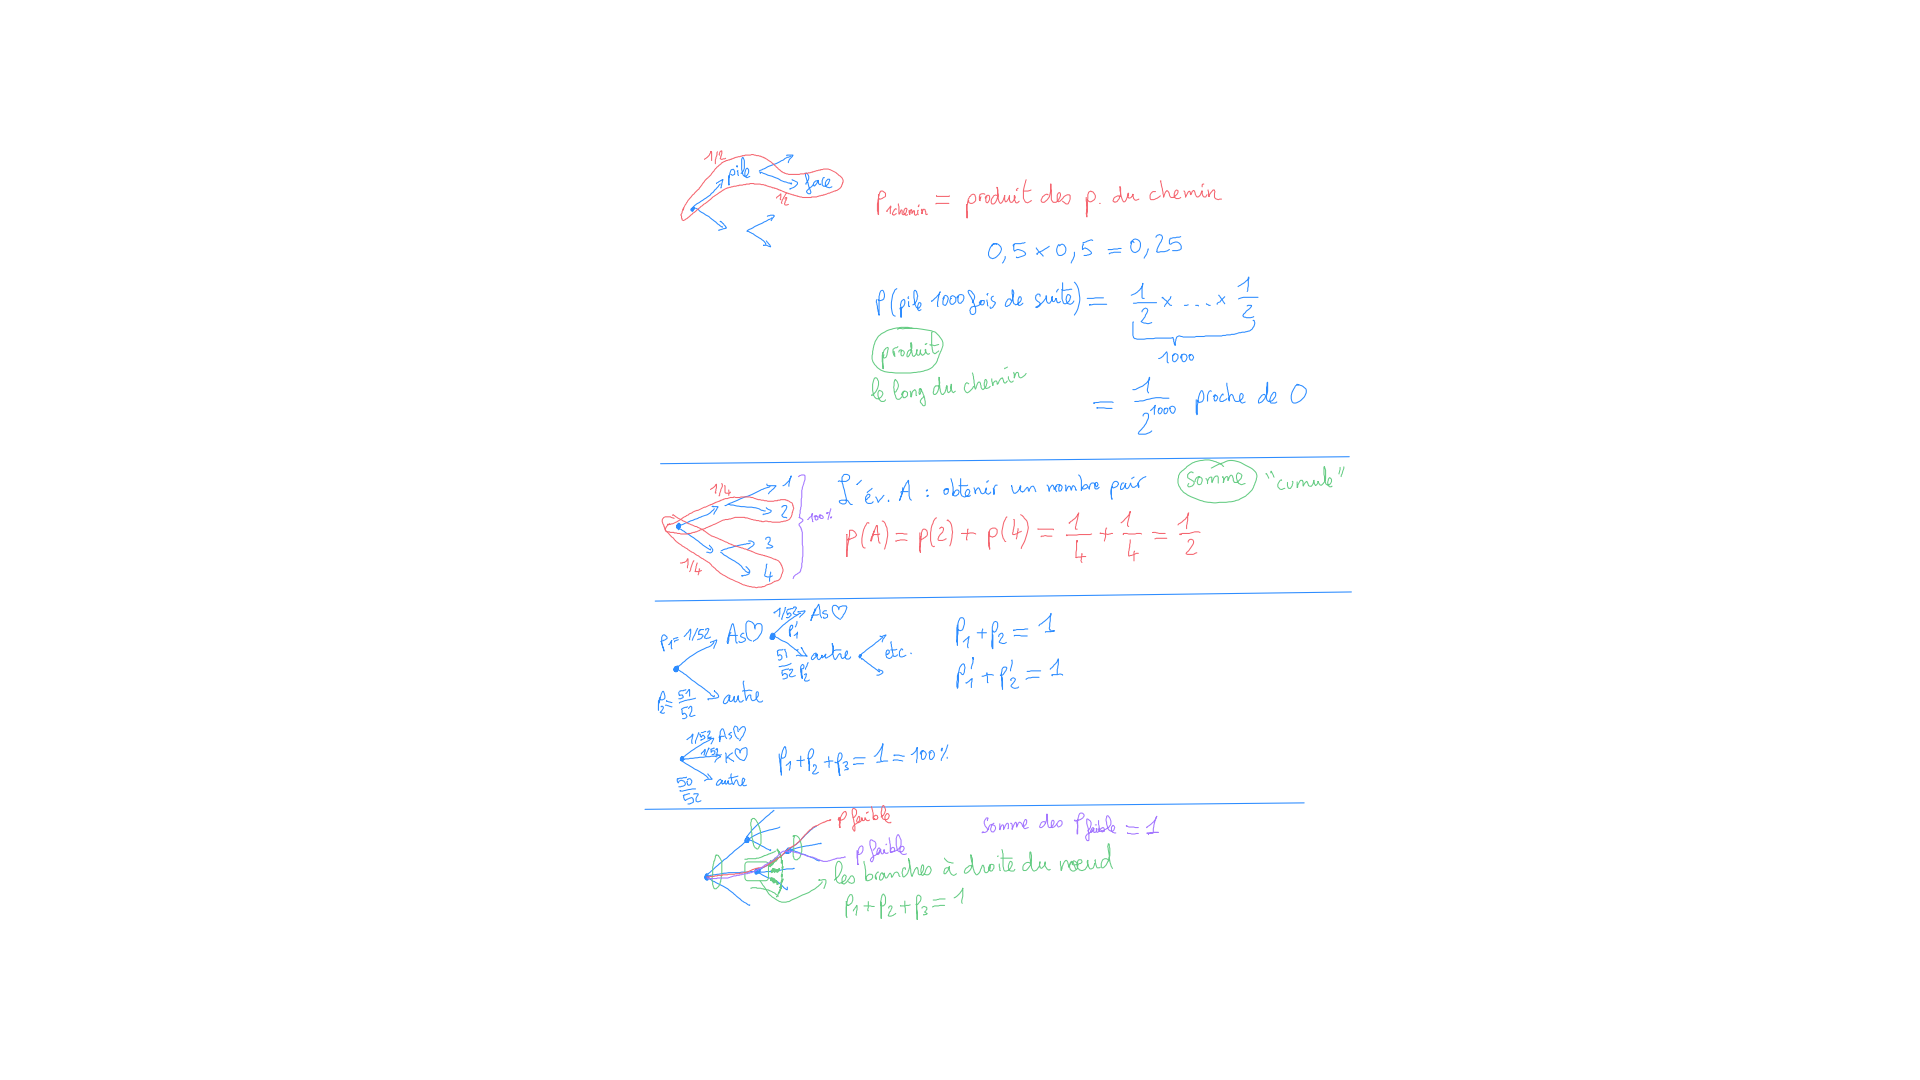 1/2
pile
face
1/2
P1chemin = produit des p. du chemin
0,5 × 0,5 = 0,25
P(pile 1000 fois de suite) = 1/2 × ... × 1/2
1000
produit
le long du chemin
= 1/2^1000 proche de 0
1/4
1
2
3
4
1/4
100%
L'év. A : obtenir un nombre pair
somme "cumule"
p(A) = p(2) + p(4) = 1/4 + 1/4 = 1/2
P1 = 1/52 As♡
1/52 As♡
P'1
51/52 P'2 autre
etc.
P2 = 51/52 autre
P1 + P2 = 1
P'1 + P'2 = 1
1/52 As♡
1/52 K♡
50/52 autre
P1 + P2 + P3 = 1 = 100%
p faible
p faible
Somme des P faible = 1
les branches à droite du nœud
P1 + P2 + P3 = 1